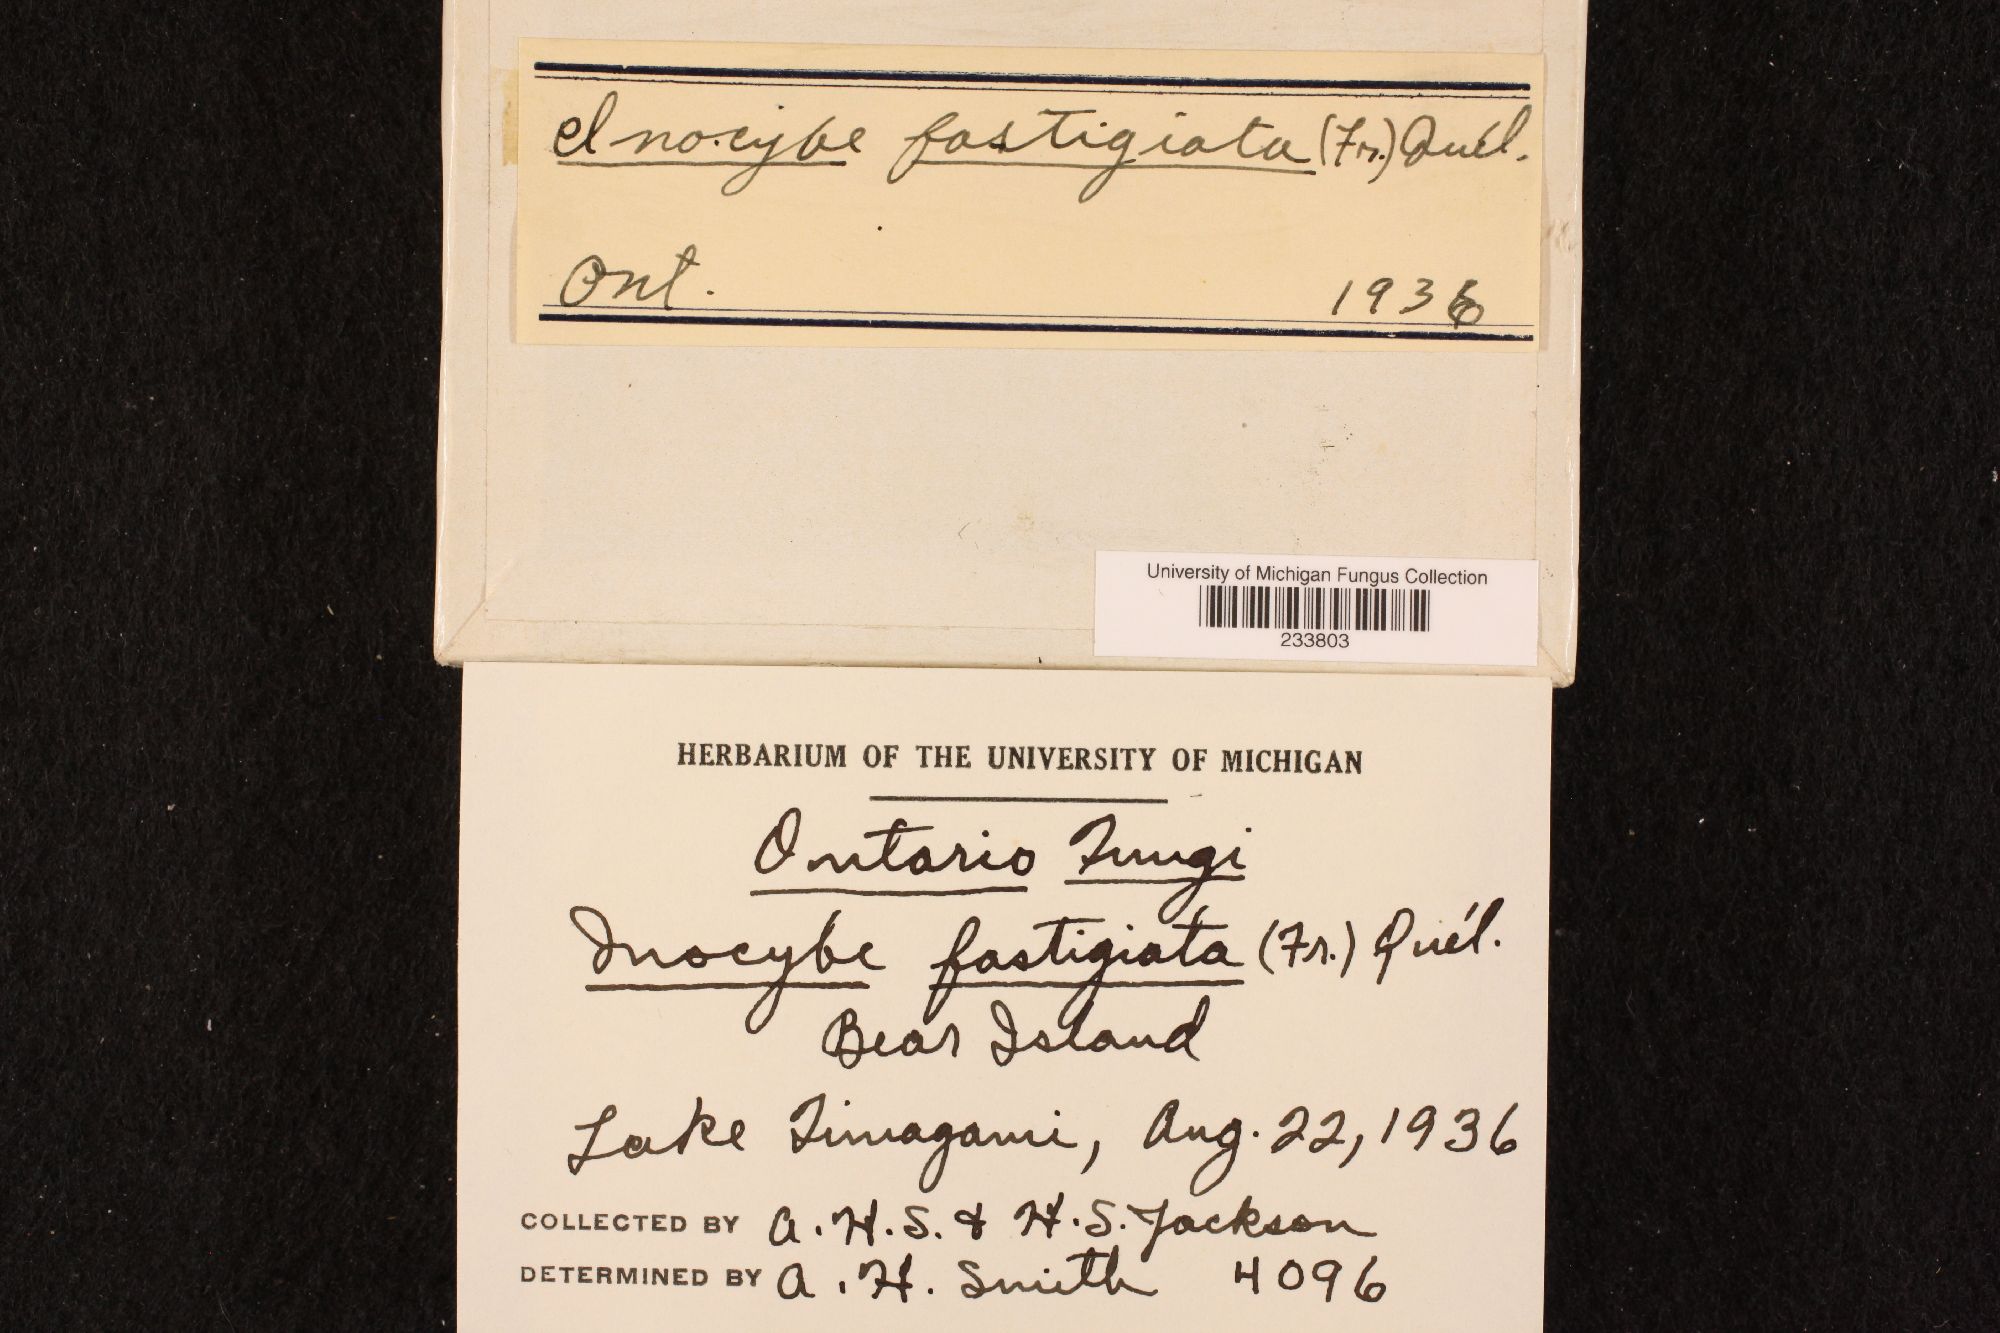 Inocybe fastigiata (Fr.) Quél.
Ont. 1936
University of Michigan Fungus Collection
233803
HERBARIUM OF THE UNIVERSITY OF MICHIGAN
Ontario Fungi
Inocybe fastigiata (Fr.) Quél.
Bear Island
Lake Timagami, Aug. 22, 1936
COLLECTED BY A. H. S. & H. S. Jackson
DETERMINED BY A. H. Smith 4096